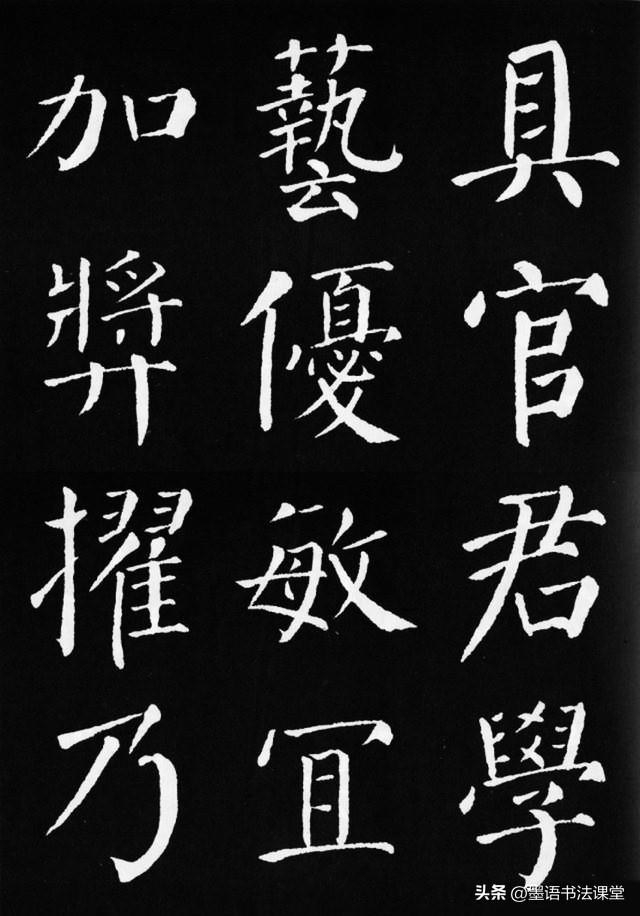 具官君學
藝優敏冝
加奬擢乃
头条 @墨语书法课堂